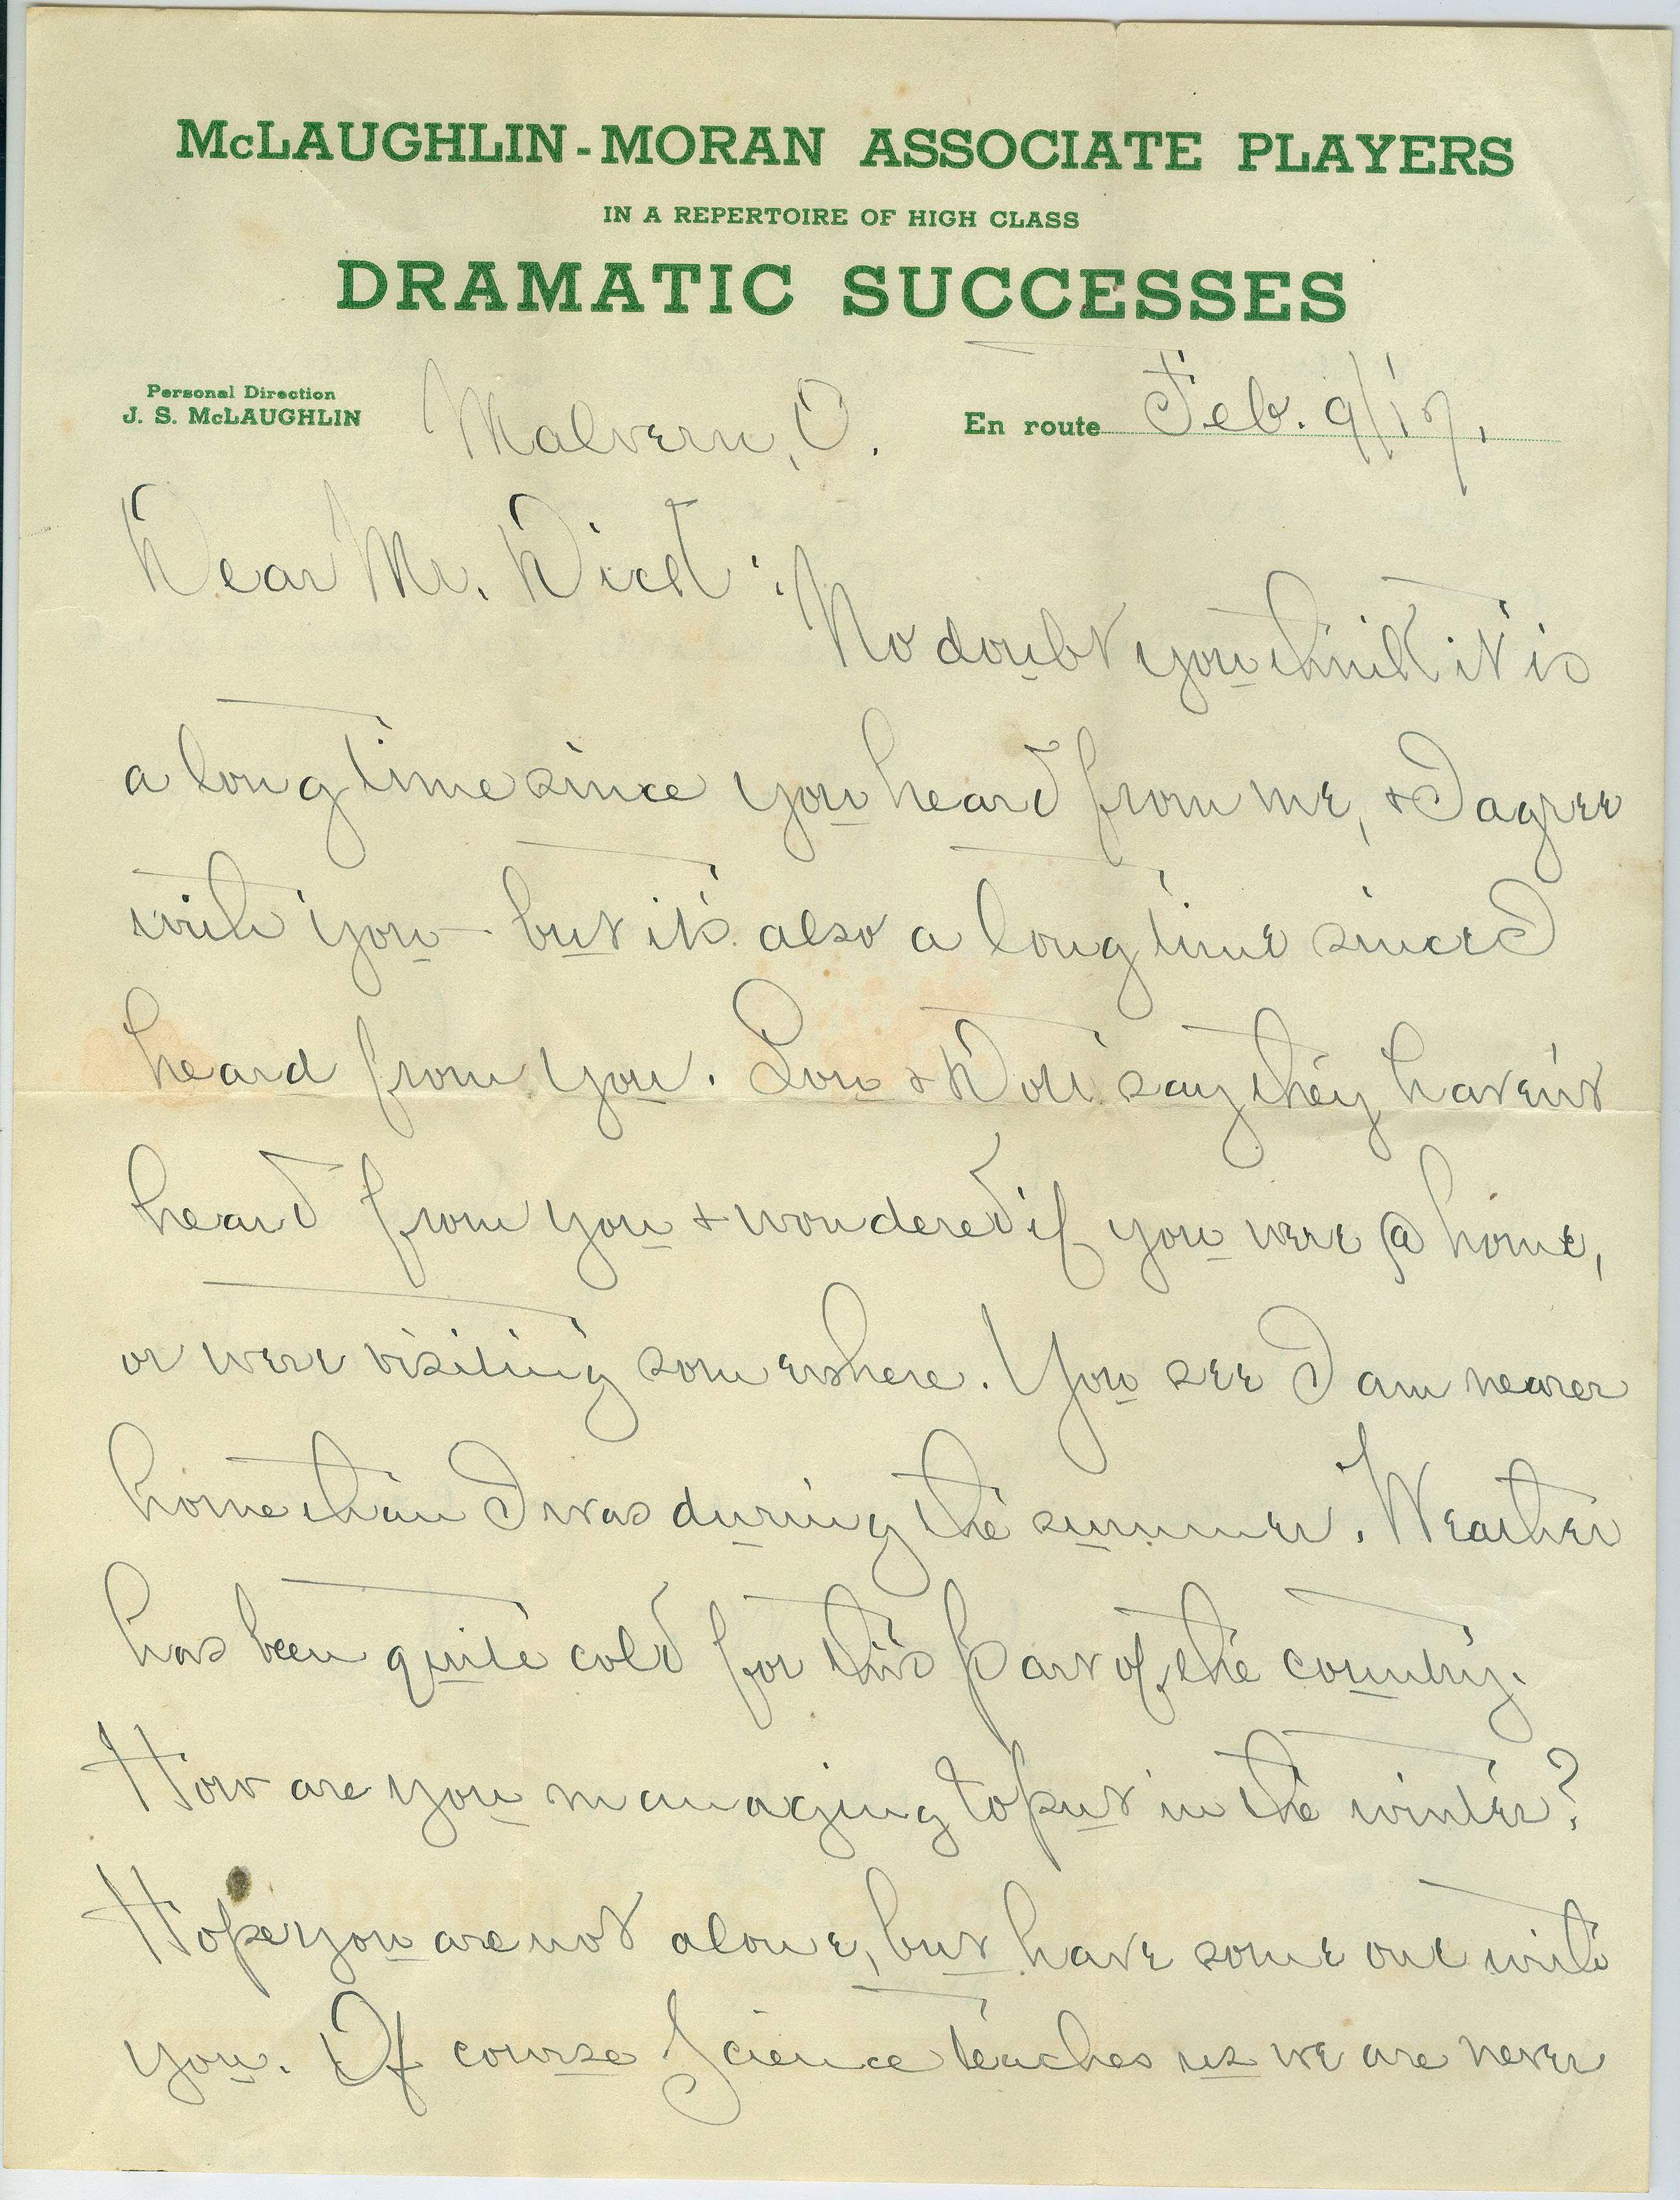 McLAUGHLIN-MORAN ASSOCIATE PLAYERS
IN A REPERTOIRE OF HIGH CLASS
DRAMATIC SUCCESSES
Personal Direction
J. S. McLAUGHLIN
Malvern, O.
En route Feb. 9/17.
Dear Mr. Dick:
No doubt you think it is
a long time since you heard from me, & I agree
with you - but it's also a long time since I
heard from you. Lou & Dot say they haven't
heard from you & wondered if you were @ home,
or were visiting somewhere. You see I am nearer
home than I was during the summer. Weather
has been quite cold for this part of the country.
How are you managing to put in the winter?
Hope you are not alone, but have some one with
you. Of course Science teaches us we are never